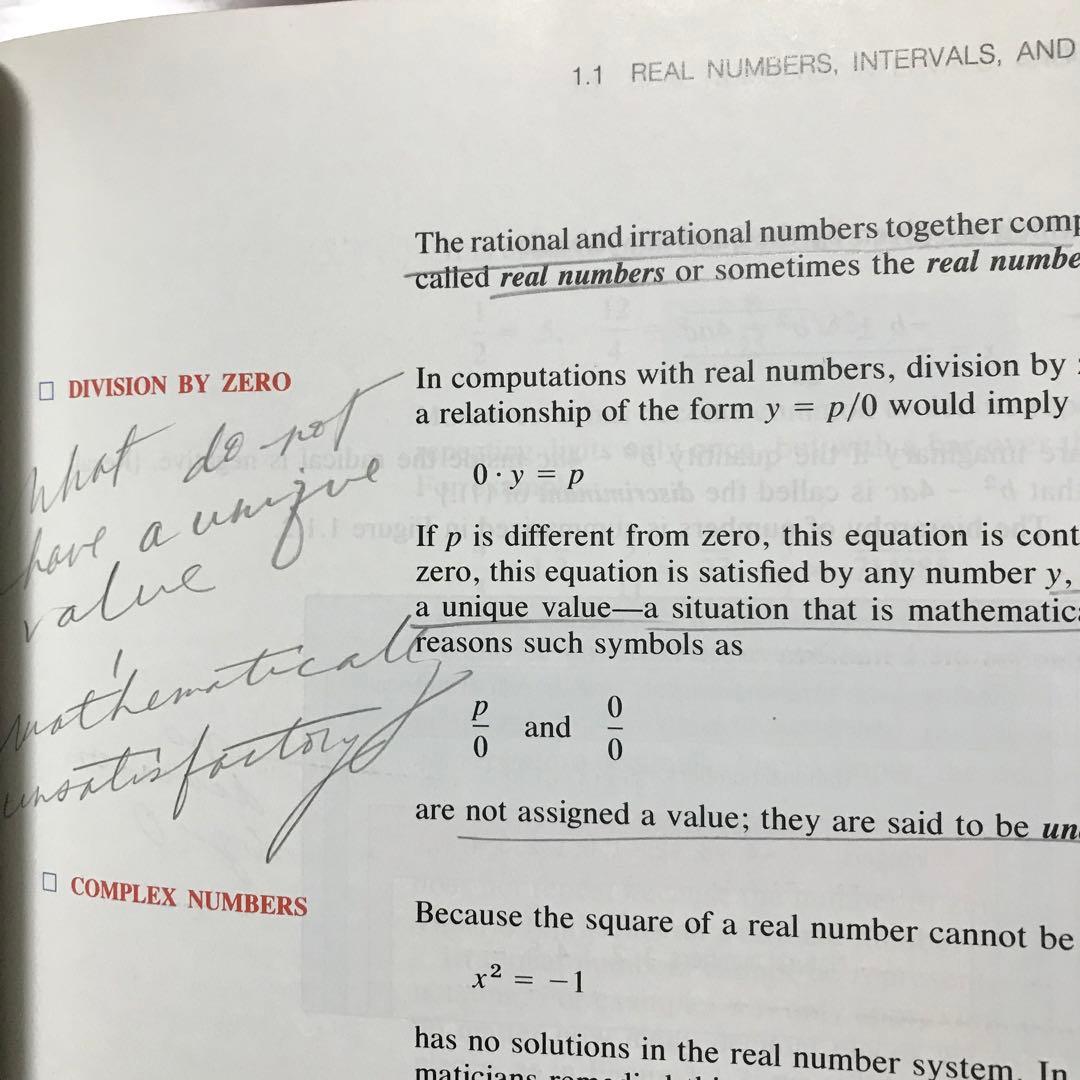 1.1 REAL NUMBERS, INTERVALS, AND
The rational and irrational numbers together comp
called real numbers or sometimes the real numbe
DIVISION BY ZERO
In computations with real numbers, division by
a relationship of the form y = p/0 would imply
0 · y = p
If p is different from zero, this equation is cont
zero, this equation is satisfied by any number y,
a unique value—a situation that is mathematica
reasons such symbols as
p/0 and 0/0
are not assigned a value; they are said to be un
What do not
have a unique
value
mathematically
unsatisfactory
COMPLEX NUMBERS
Because the square of a real number cannot be
x² = −1
has no solutions in the real number system. In